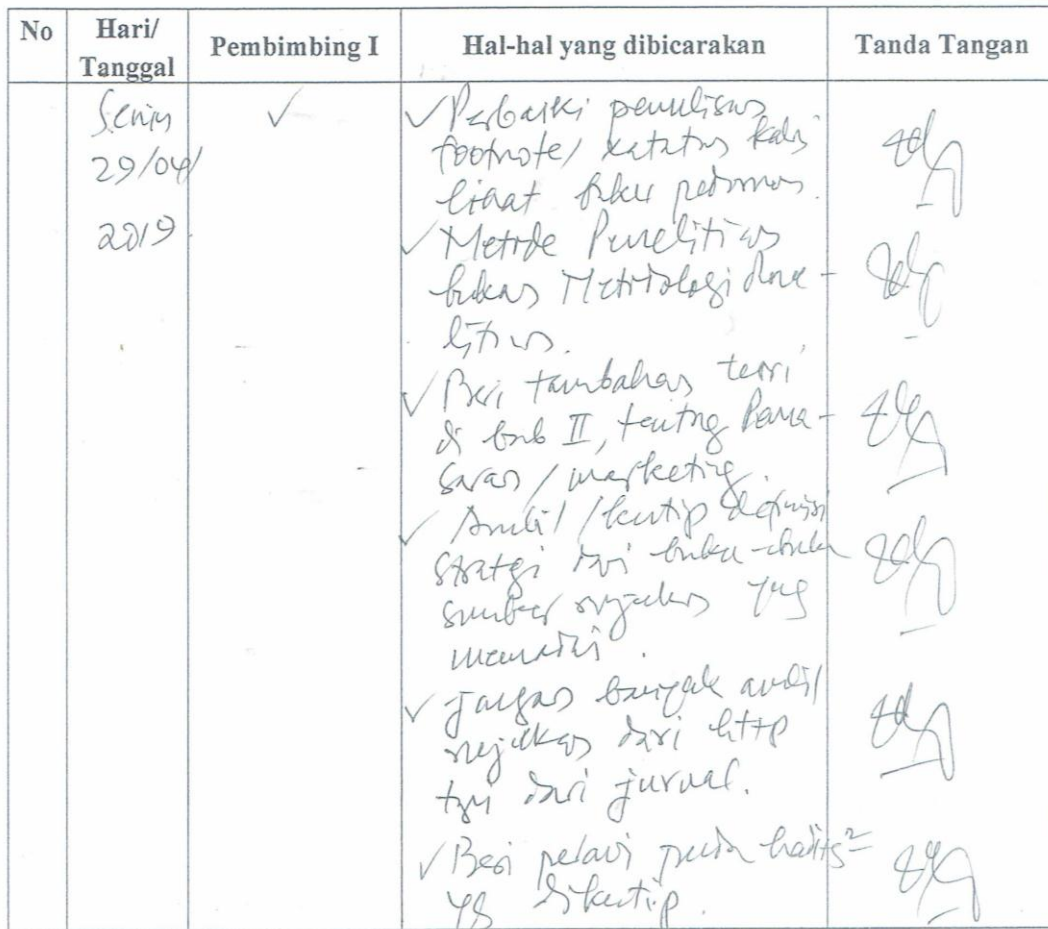 No Hari/ Tanggal Pembimbing I Hal-hal yang dibicarakan Tanda Tangan
Senin ✓ ✓ Perbaiki penulisan
29/04/ footnote/ catatan kaki
lihat buku pedoman.
2019 ✓ Metode Penelitian
bukan Metodologi Pene-
litian.
✓ Beri tambahan teori
di bab II, tentng Pema-
saran / marketing.
✓ Ambil / kutip definisi
strategi dari buku-buku
sumber rujukan yng
✓ Jangan banyak ambil
rujukan dari http
tpi dari jurnal.
✓ Beri perawi pada hadits²
yg dikutip.